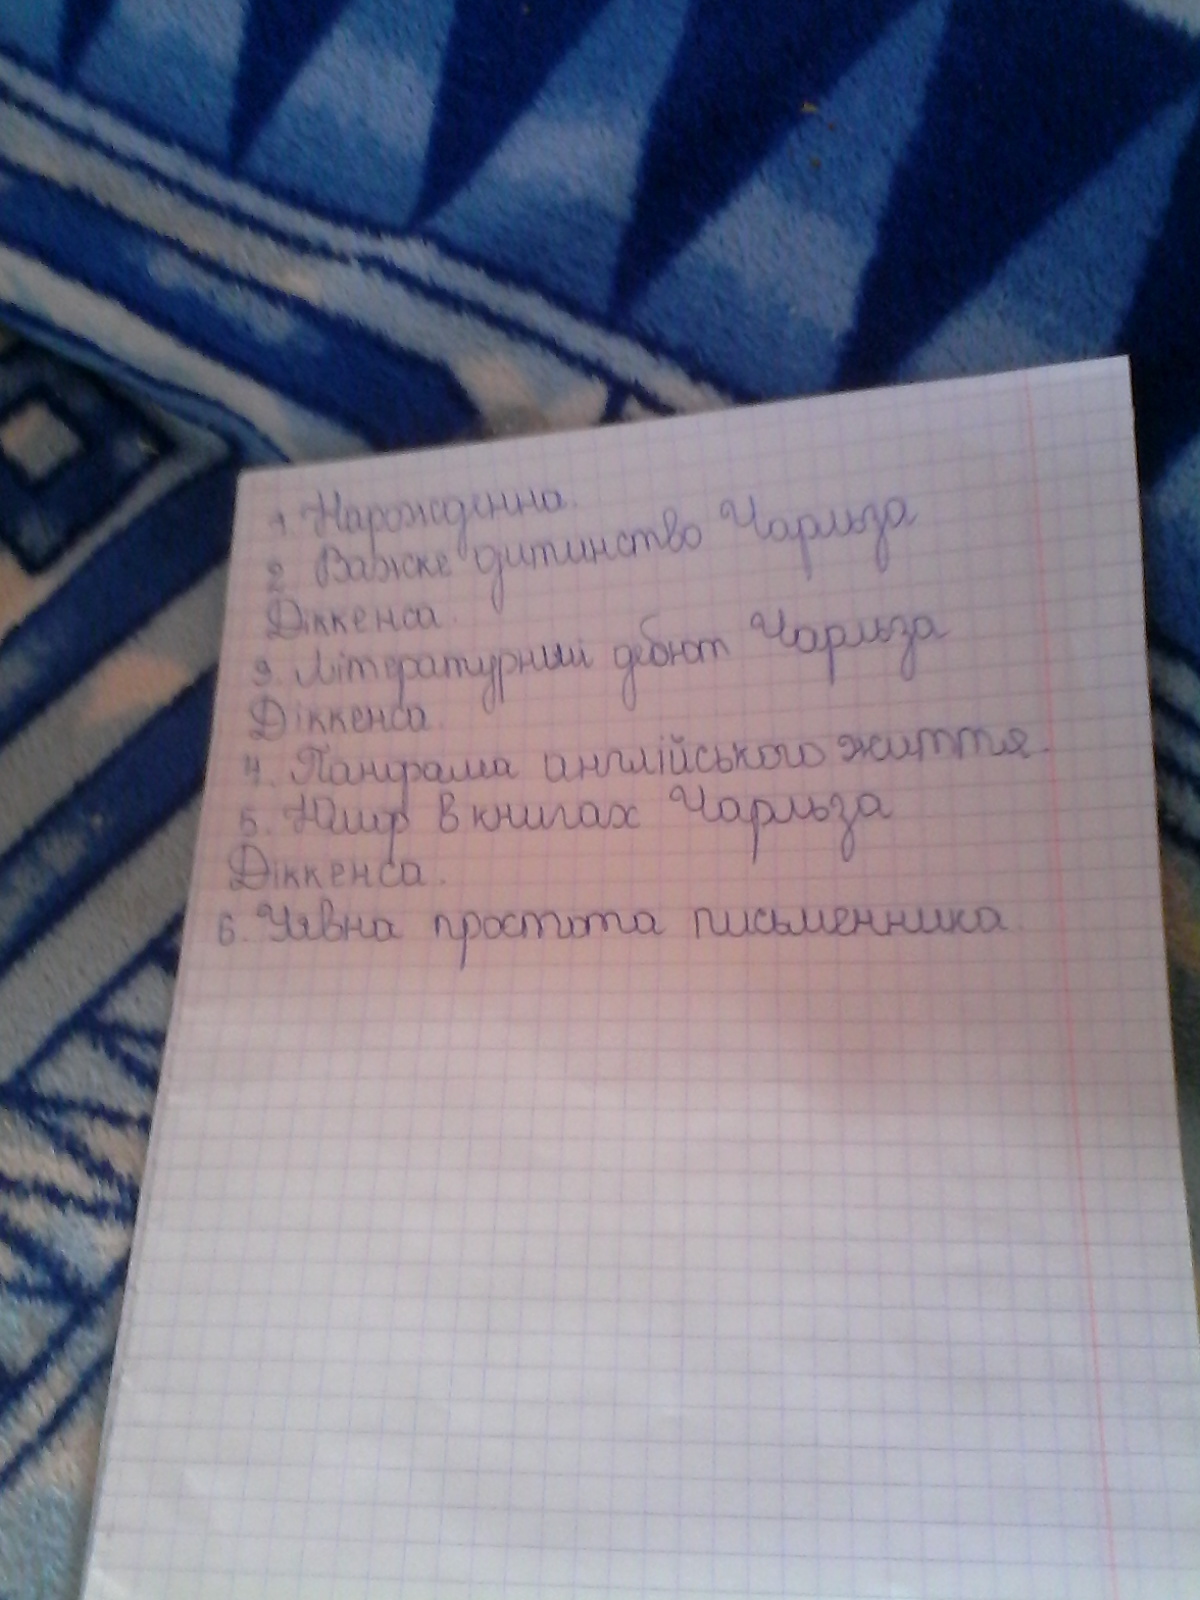 1. Нарождення.
2. Важке дитинство Чарльза
Діккенса.
3. Літературний дебют Чарльза
Діккенса.
4. Панорама англійського життя.
5. Юмор в книгах Чарльза
Діккенса.
6. Уявна простота письменника.